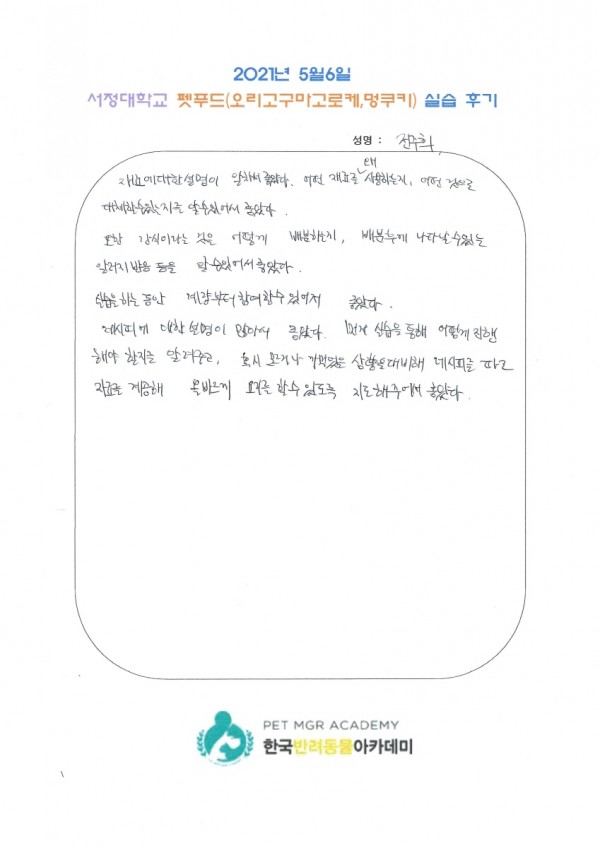 2021년 5월6일
서정대학교 펫푸드(오리고구마고로케,멍쿠키) 실습 후기
성명 : 전주희
재료에대한설명이 좋았다. 어떤 재료를 왜 사용하는지, 어떤 것으로
대체할수있는지를 알수있어서 좋았다.
또한 간식이라는 것은 어떻게 배분하는지, 배분후에 나타날수있는
알러지반응 등을 알수있어서 좋았다.
실습을하는 동안 계량부터참여할수있어서 좋았다.
레시피에 대한설명이 많아서 좋았다. 먼저 실습을 통해 어떻게 진행
해야 할지를 알려주고, 혹시 모르거나 상황을대비해 레시피를 따로
자료로 제공해 올바르게 요리를 할수있도록 지도해주어서 좋았다.
PET MGR ACADEMY
한국반려동물아카데미